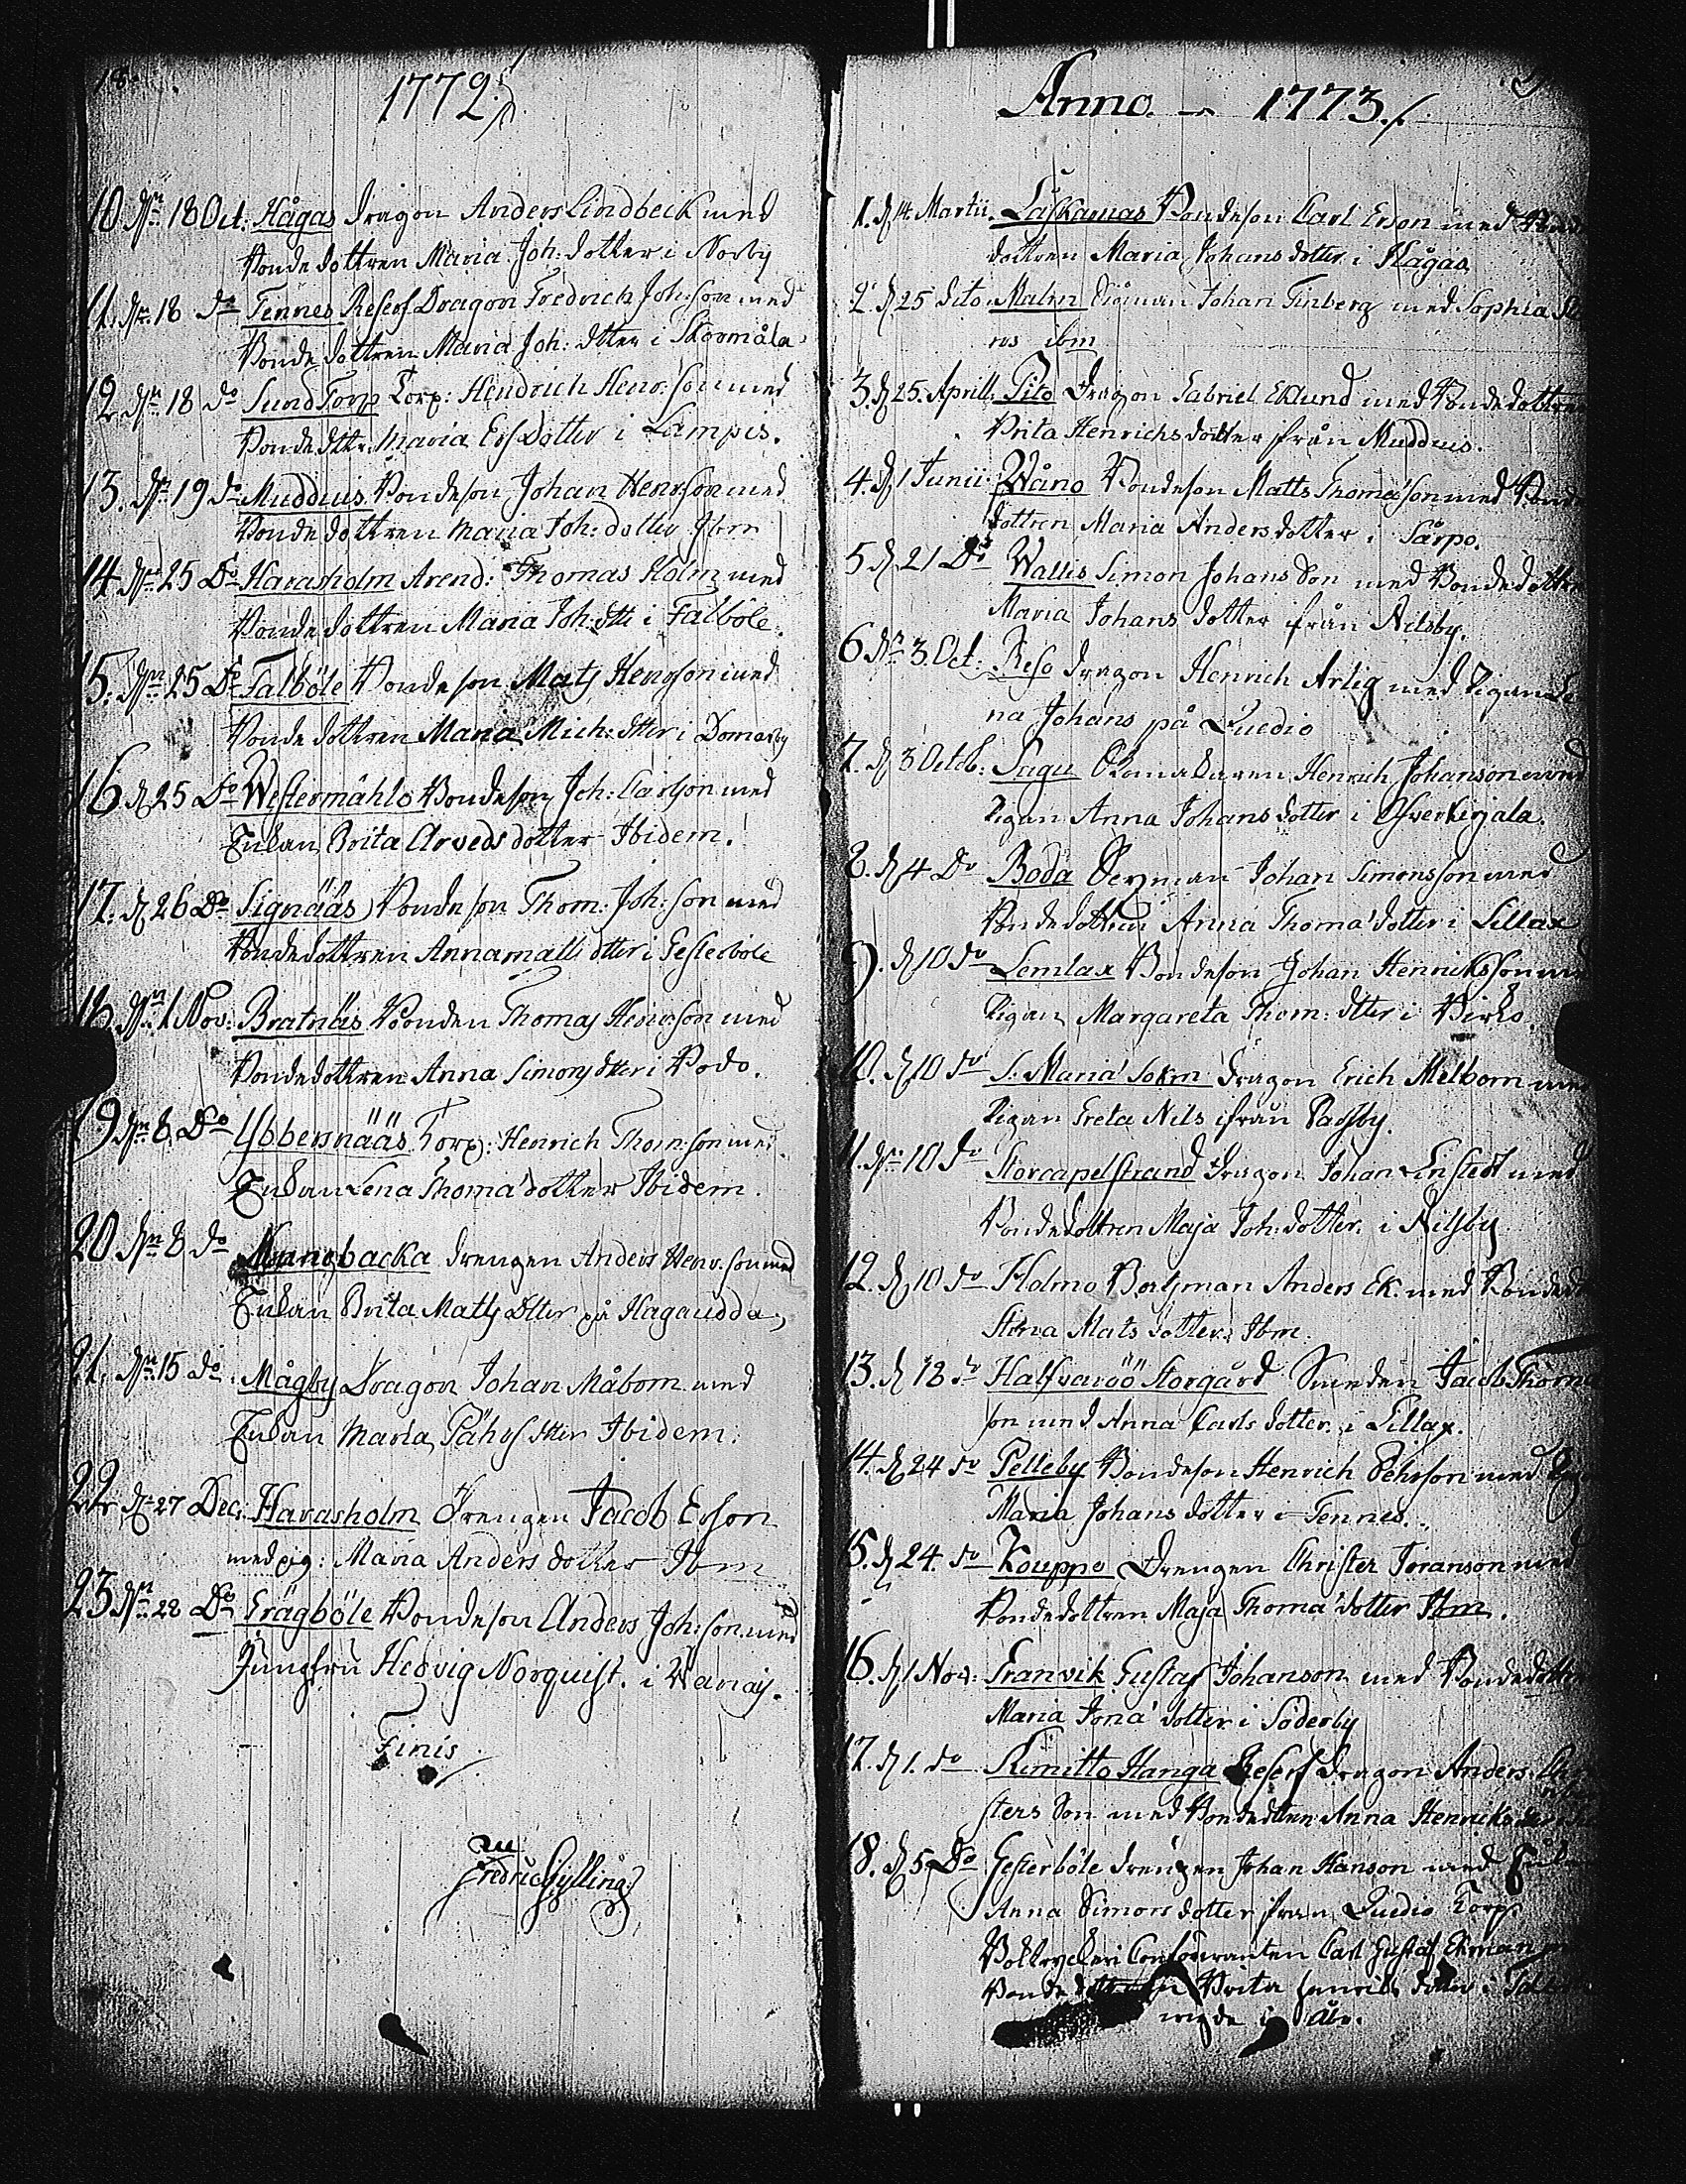 18
1772
10 dn 18 Oct: Hågas Dragon Anders Lindbeck med
Bonde dottren Maria Joh: dotter i Norby
11. dn 18 do Tennes Reserf Dragon Fredrich Joh:son med
Bonde dottren Maria Joh: dtter i Stormåla
12. dn 18 do Sund Torp Torp: Hendrich Henr: son med
Bonde dttr. Maria Ers Dotter i Lampis.
13. dn 19 do Mudduis Bondeson Johan Henr:son med
Bonde dottren Maria Joh: dotter Ibm
14 dn 25 Do Harasholm Arend: Thomas Holm med
Bonde dottren Maria Joh: dtt i Falböle.
15. dn 25 Do Falböle Bondeson Mats Henr:son med
Bonde dottren Maria Mich: dtter i Domarby
16 d 25 Do Westermåhlo Bondeson Joh: Carlson med
Enkan Brita Arveds dotter Ibidem.
17. d 26 Do Signääs Bondeson Thom: Joh: son med
Bondedottren Anna Matts dtter i Gesterböle
18 dn 1 Nov: Bratnäs Bonden Thomas Henr:son med
Bondedottren Anna Simons dtter i Bodo.
19 dn 8 Do Ybbersnääs Torp: Henrich Thom:son med
Enkan Lena Thoma' dotter Ibidem.
20 dn 8 do backa Drengen Anders Henr. son med
Enkan Brita Matts dtter på Hagaudda,
21. dn 15 do Mågby Dragon Johan Måbom med
Enkan Maria Påhls dtter Ibidem.
22 d 27 Dec: Harasholm Drengen Jacob Erson
med pig: Maria Anders dotter Ibm
23 dn 28 Do Grägböle Bondeson Anders Joh: son med
Jungfru Hedvig Norquist. i
Finis
Fredric Gylling
Anno 1773.
1. d 14 Martii. Låskarnas Bondeson Carl Erson med
dottren Maria Johans dotter i Hågas
2. d 25 dito. Malm Johan Finberg med Sophia
ros ibm
3. d 25. Aprill. Pito Dragon Gabriel Eklund med Bondedottren
Brita Henrichs dotter ifrån Mudduis.
4. d 1 Junii Wåno Bondeson Matts Thoma'son med
dottren Maria Anders dotter i Sårpo.
5 d 21 Do Wallis Simon Johans Son med Bondedottren
Maria Johans dotter ifrån Nilsby.
6 dn 3. Oct: Reso Dragon Henrich Arlig med Pigan
na Johans på Quedio
7. d 3 Octob: Sagu Henrich Johanson med
Pigan Anna Johans dotter i
8. d 4 Do Boda Johan Simonsson med
Bondedottren Anna Thoma' dotter i Lillax
9. d 10 do Lemlax Bondeson Johan Henricksson med
Pigan Margareta Thom: dtter i Pirko.
10. d 10 do S: Maria Sokn Dragon Erich Melbom med
Pigan Greta Nils ifrån
11. dn 10 do Storcapelstrand Dragon Johan Enstedt med
Bondedottren Maja Joh: dotter i Nilsby
12. d 10 do Holmo Båtsman Anders Ek. med
Stina Mats dotter Ibm.
13. d 12 do Halfvaröö Storgård Smeden Jacob Thoma
son med Anna Carls dotter. i Lillax.
14. d 24 do Pelleby Bondeson Henrich Pehrson med
Maria Johans dotter i Tennes.
15. d 24. do Kouppo Drengen Christer Joranson med
Bondedottren Maja Thoma' dotter Ibm.
16. d 1 Nov: Granvik Gustaf Johanson med Bondedottren
Maria Jona' dotter i Söderby
17. d 1. do Kimitto Hanga Reserf Dragon Anders
sters Son med Bondedttren Anna Henricks
18. d 5 Do Gesterböle Drengen Johan Hanson med
Anna Simons dotter ifrån Quedio Torp.
Carl Gustaf Ekman
Bonde Brita Henrics dotter i
i år.